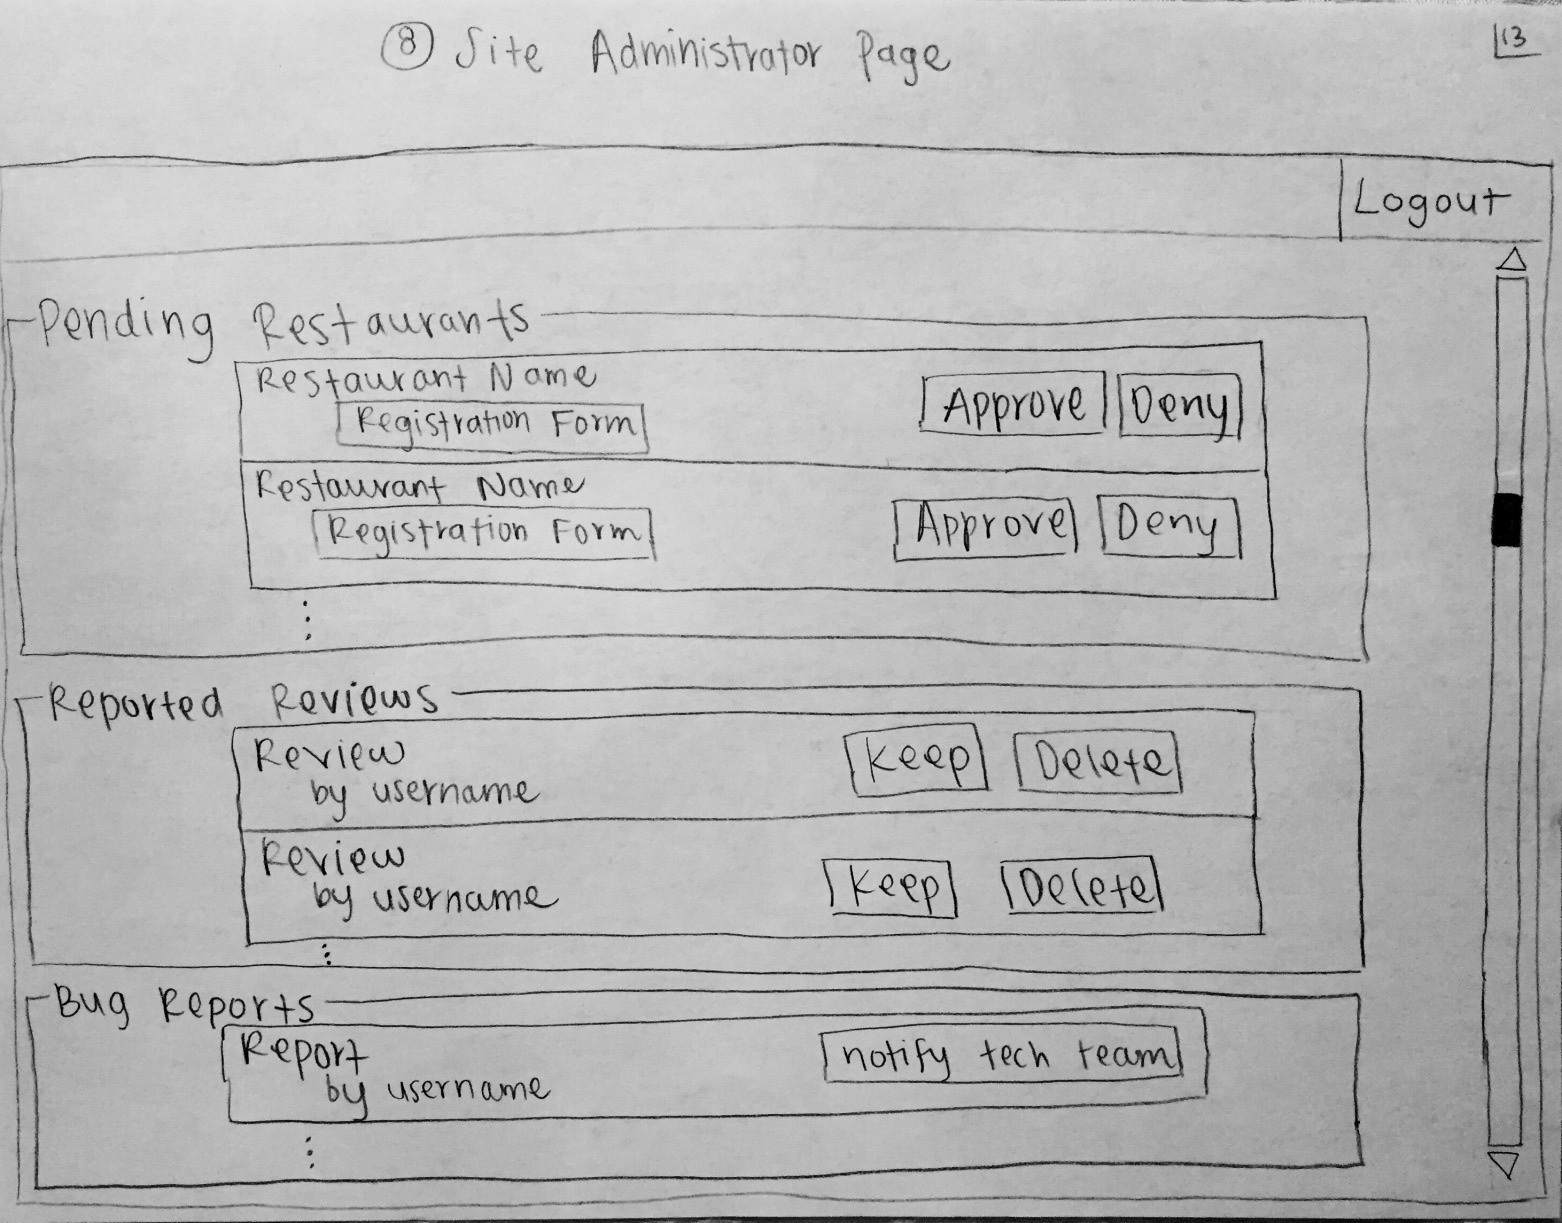 8 Site Administrator Page
13
Logout
Pending Restaurants
Restaurant Name
Registration Form
Approve Deny
Restaurant Name
Registration Form
Approve Deny
Reported Reviews
Review
by username
Keep Delete
Review
by username
Keep Delete
Bug Reports
Report
by username
notify tech team